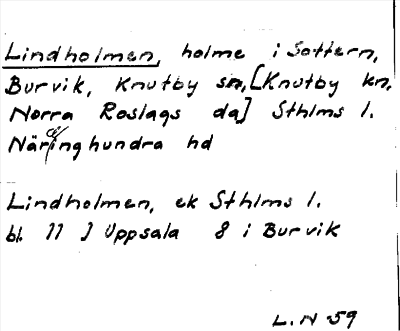 Lindholmen, holme i Sottern,
Burvik, Knutby sn, [Knutby kn,
Norra Roslags da] Sthlms l.
Närdinghundra hd
Lindholmen, ek Sthlms l.
bl. 77 J Uppsala 8 i Burvik
L. N 59